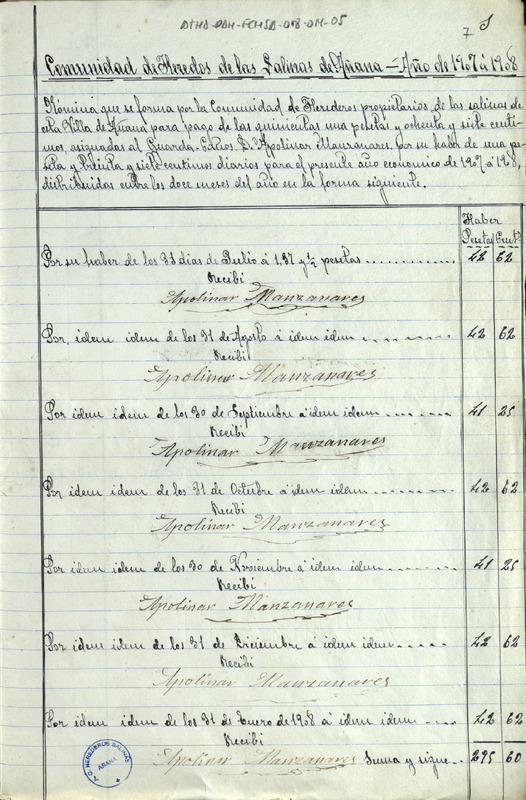 ATHA-DAH-FCHSA-018-011-05
7
Comunidad de Heredos de las Salinas de Añana = Año de 1907 á 1908
Nómina que se forma por la Comunidad de Herederos propietarios de las salinas de
esta Villa de Añana para pago de las quinientas una pesetas y ochenta y siete centi-
mos, asignadas al Guarda-Eras D. Apolinar Manzanares, por su haber de una pe-
seta y treinta y siete centimos diarios para el presente año economico de 1907 á 1908,
distribuidas entre los doce meses del año en la forma siguiente.
Haber
Pesetas Cents
Por su haber de los 31 dias de Julio á 1,37 y ½ pesetas 42 62
Recibí
Apolinar Manzanares
Por idem idem de los 31 de Agosto á idem idem 42 62
Recibí
Apolinar Manzanares
Por idem idem de los 30 de Septiembre á idem idem 41 25
Recibí
Apolinar Manzanares
Por idem idem de los 31 de Octubre á idem idem 42 62
Recibí
Apolinar Manzanares
Por idem idem de los 30 de Noviembre á idem idem 41 25
Recibí
Apolinar Manzanares
Por idem idem de los 31 de Diciembre á idem idem 42 62
Recibí
Apolinar Manzanares
Por idem idem de los 31 de Enero de 1908 á idem idem 42 62
Recibí
Apolinar Manzanares Suma y sigue 295 60
HEREDEROS SALINAS
AÑANA